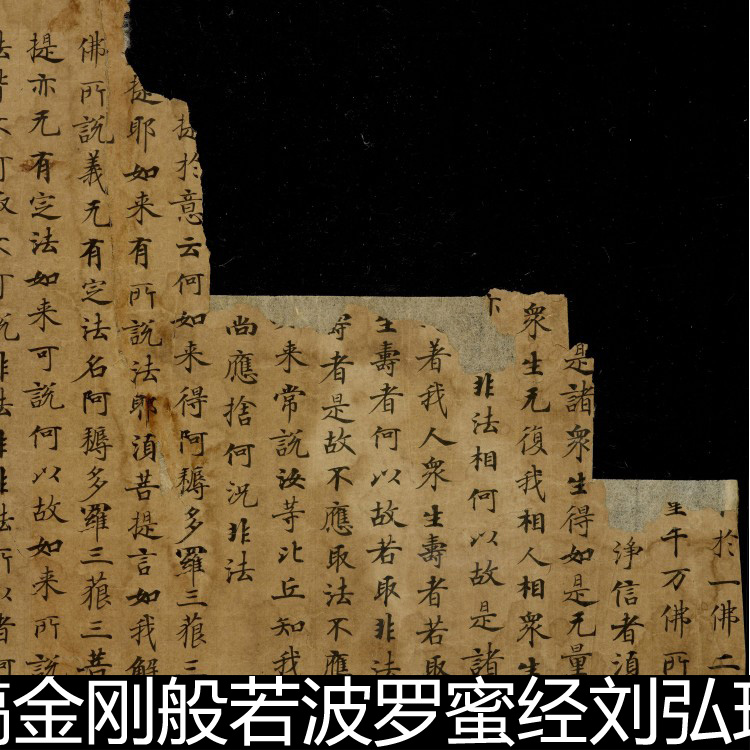 於一佛二
千万佛所
淨信者湏
是諸衆生得如是无量
衆生无復我相人相衆生
非法相何以故是諸
著我人衆生壽者若取
生壽者何以故若取非法
者是故不應取法不應
来常說汝等比丘知我
尚應捨何況非法
提於意云何如来得阿耨多羅三藐三
提耶如来有所說法耶湏菩提言如我解
佛所說義无有定法名阿耨多羅三藐三菩
提亦无有定法如来可說何以故如来所說
金刚般若波罗蜜经刘弘